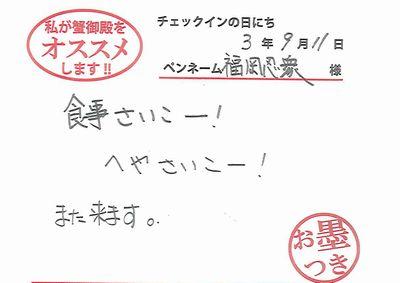 私が蟹御殿を
オススメ
します!!
チェックインの日にち
3年9月11日
ペンネーム 福岡忍衆 様
食事さいこー!
へやさいこー!
また来ます。
お墨
つき